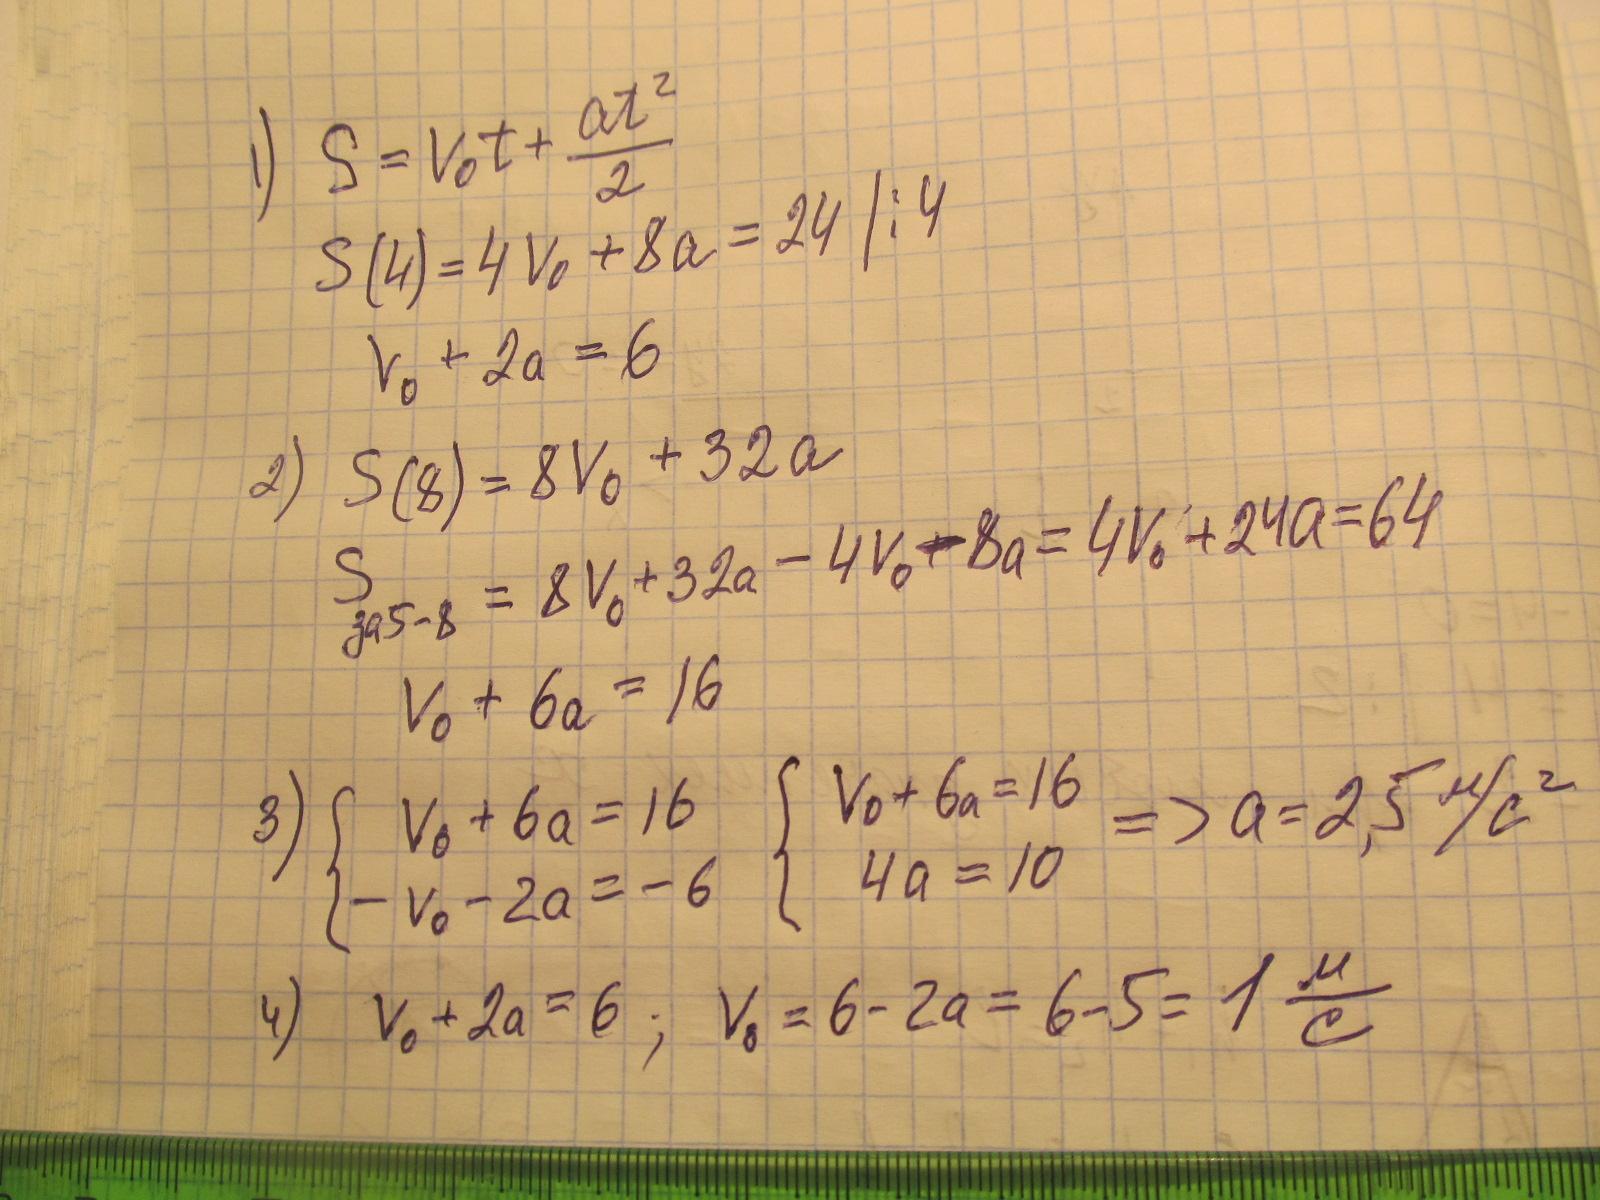 1) S = V₀t + at²/2
S(4) = 4V₀ + 8a = 24 /:4
V₀ + 2a = 6
2) S(8) = 8V₀ + 32a
S за 5-8 = 8V₀ + 32a - 4V₀ - 8a = 4V₀ + 24a = 64
V₀ + 6a = 16
3) { V₀ + 6a = 16 { V₀ + 6a = 16 => a = 2,5 м/с²
- V₀ - 2a = -6 4a = 10
4) V₀ + 2a = 6 ; V₀ = 6 - 2a = 6 - 5 = 1 м/с